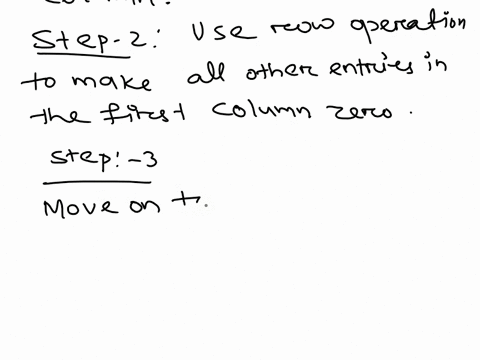 Step-2: Use row operation
to make all other entries in
the first column zero.
Step:-3
Move on t